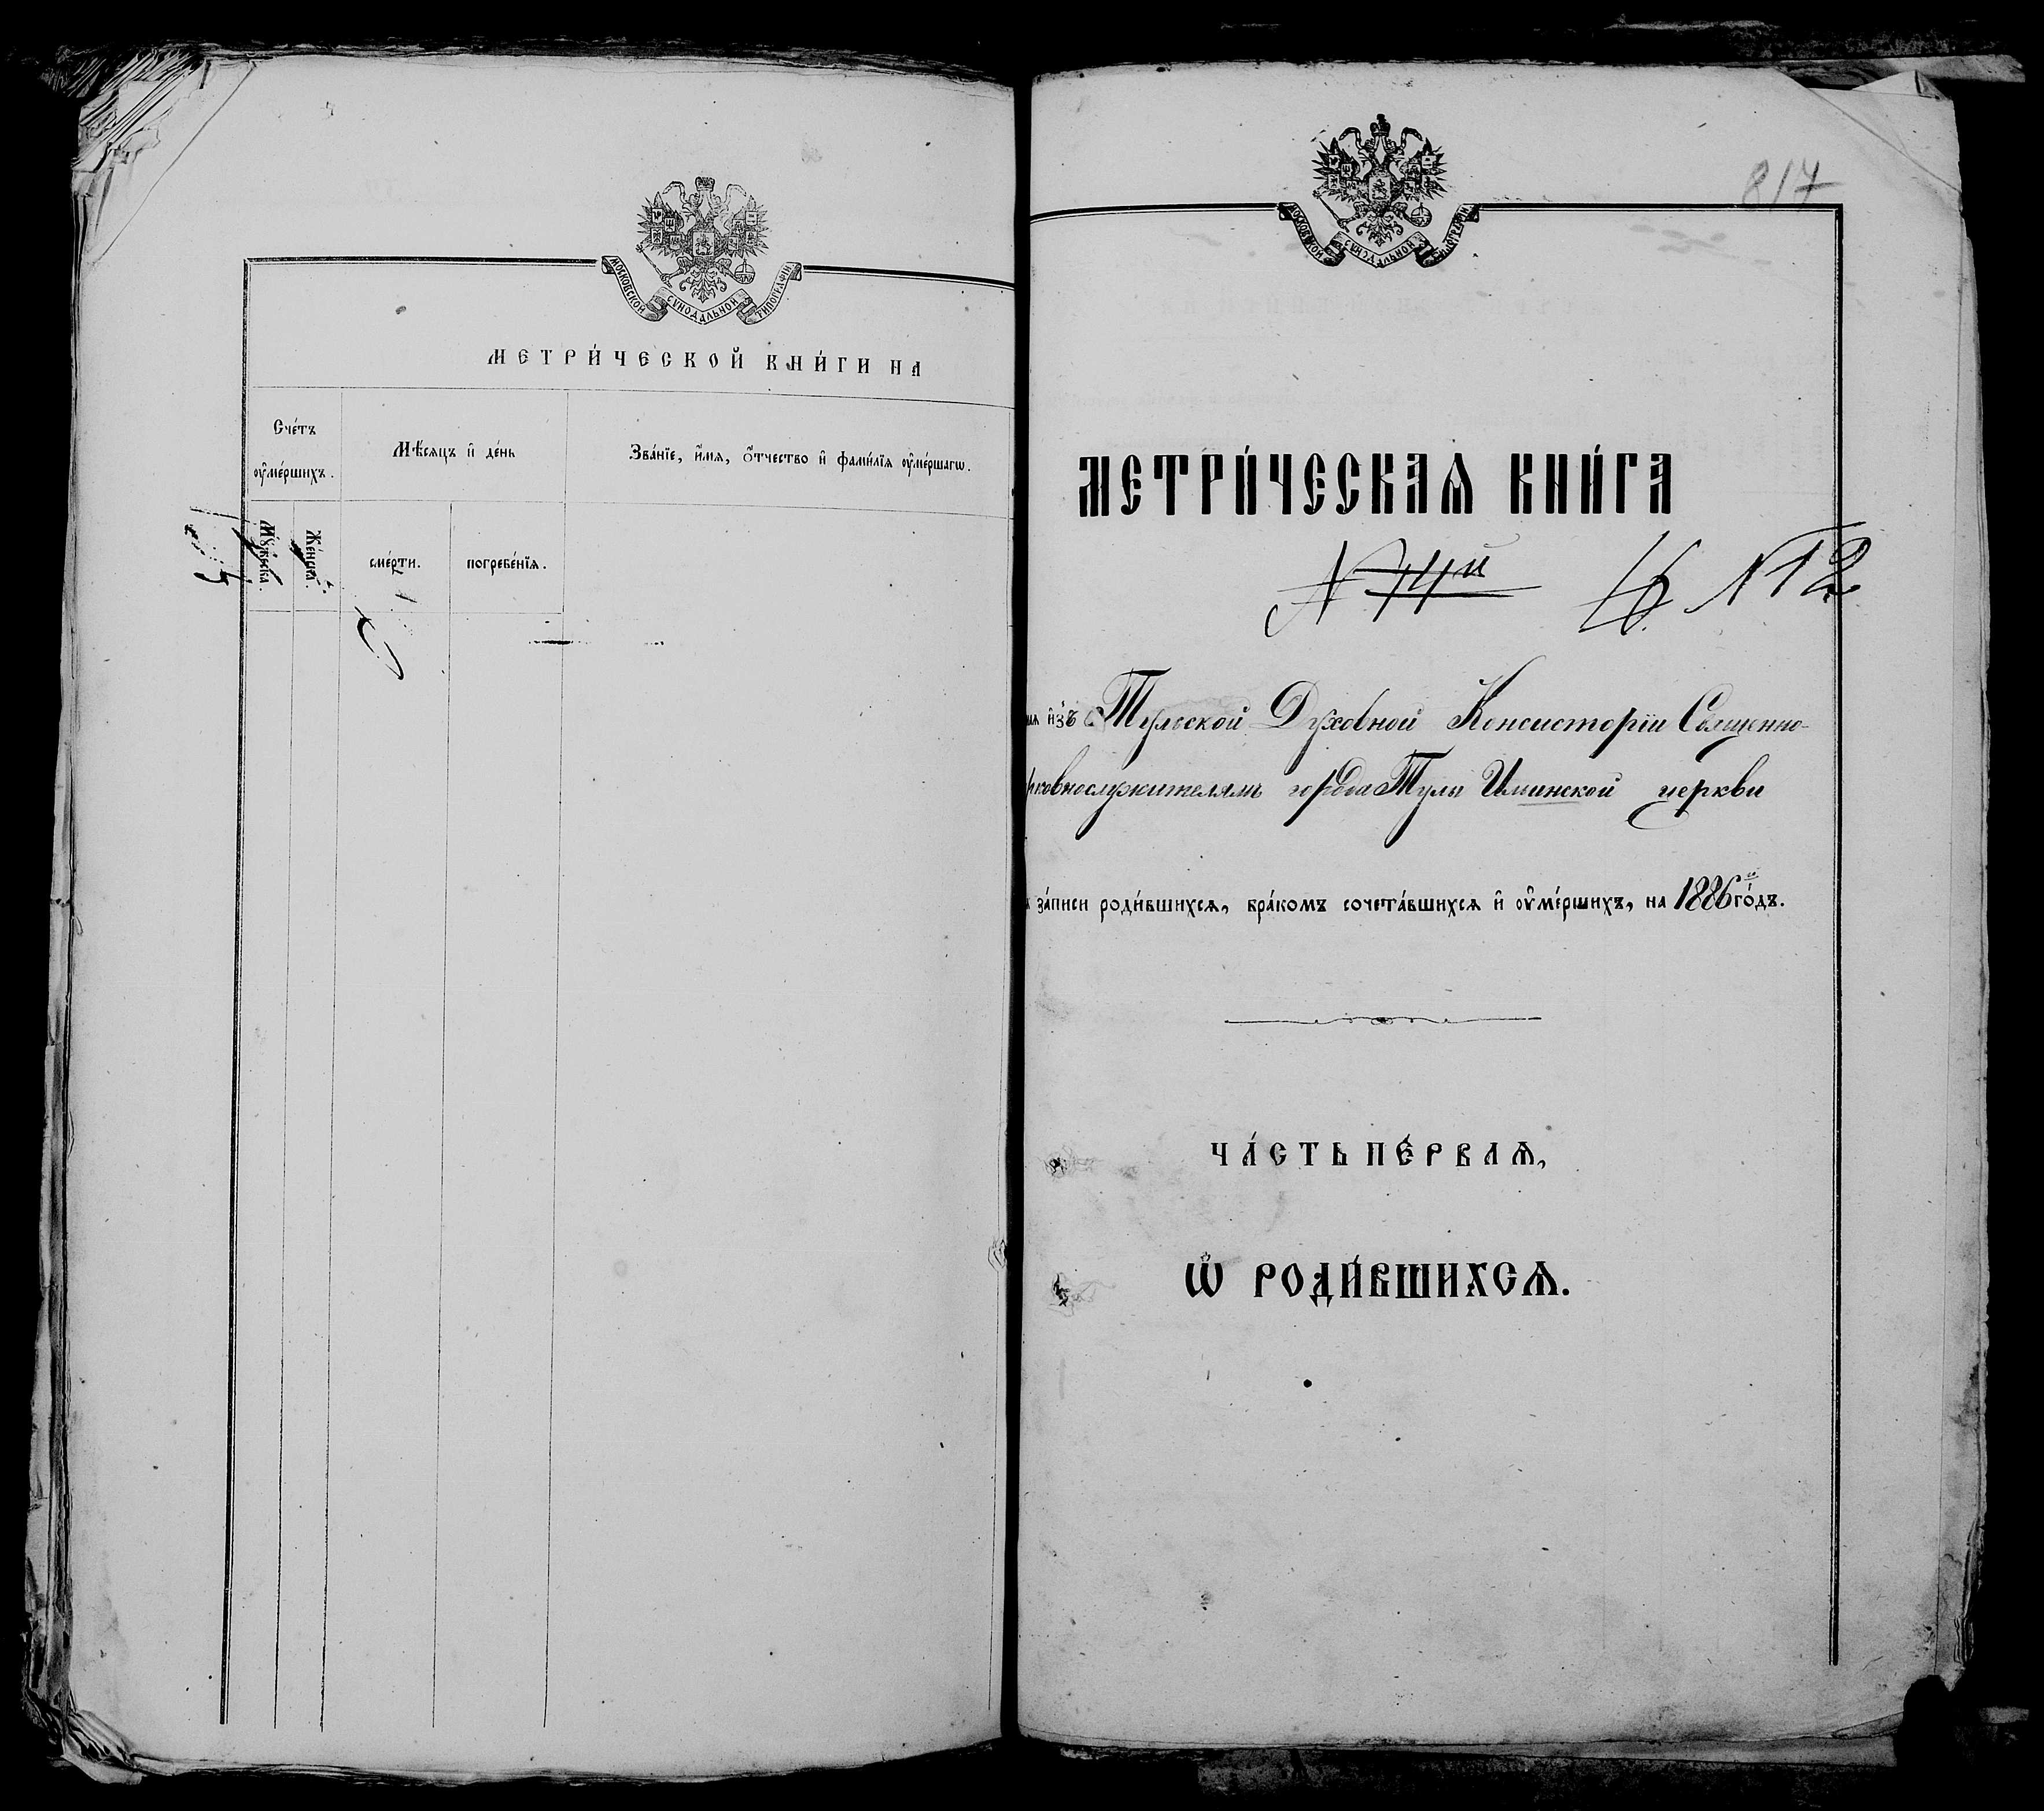 МОСКОВСКОЙ СѴНОДАЛЬНОЙ ТИПОГРАФІИ
МЕТРИ́ЧЕСКОЙ КНИ́ГИ НА
Сче́тъ ᲂу҆ме́ршихъ.
Мѣ́сяцъ и҆ де́нь
Зва́нїе, и҆́мѧ, ѻ҆́тчество и҆ фами́лїѧ ᲂу҆ме́ршагѡ.
Мꙋ́жеска.
Же́нска.
сме́рти.
погребе́нїѧ.
817
МОСКОВСКОЙ СѴНОДАЛЬНОЙ ТИПОГРАФІИ
МЕТРИ́ЧЕСКАѦ КНИ́ГА
N 74й
16 N 12
и҆зъ Тульской Духовной Консисторіи Священно-
рковнослужителямъ города Тулы церкви
за́писи роди́вшихсѧ, бра́комъ сочета́вшихсѧ и҆ ᲂу҆ме́ршихъ, на 1886й го́дъ.
ЧА́СТЬ ПЕ́РВАѦ,
Ѡ҆ РОДИ́ВШИХСѦ.